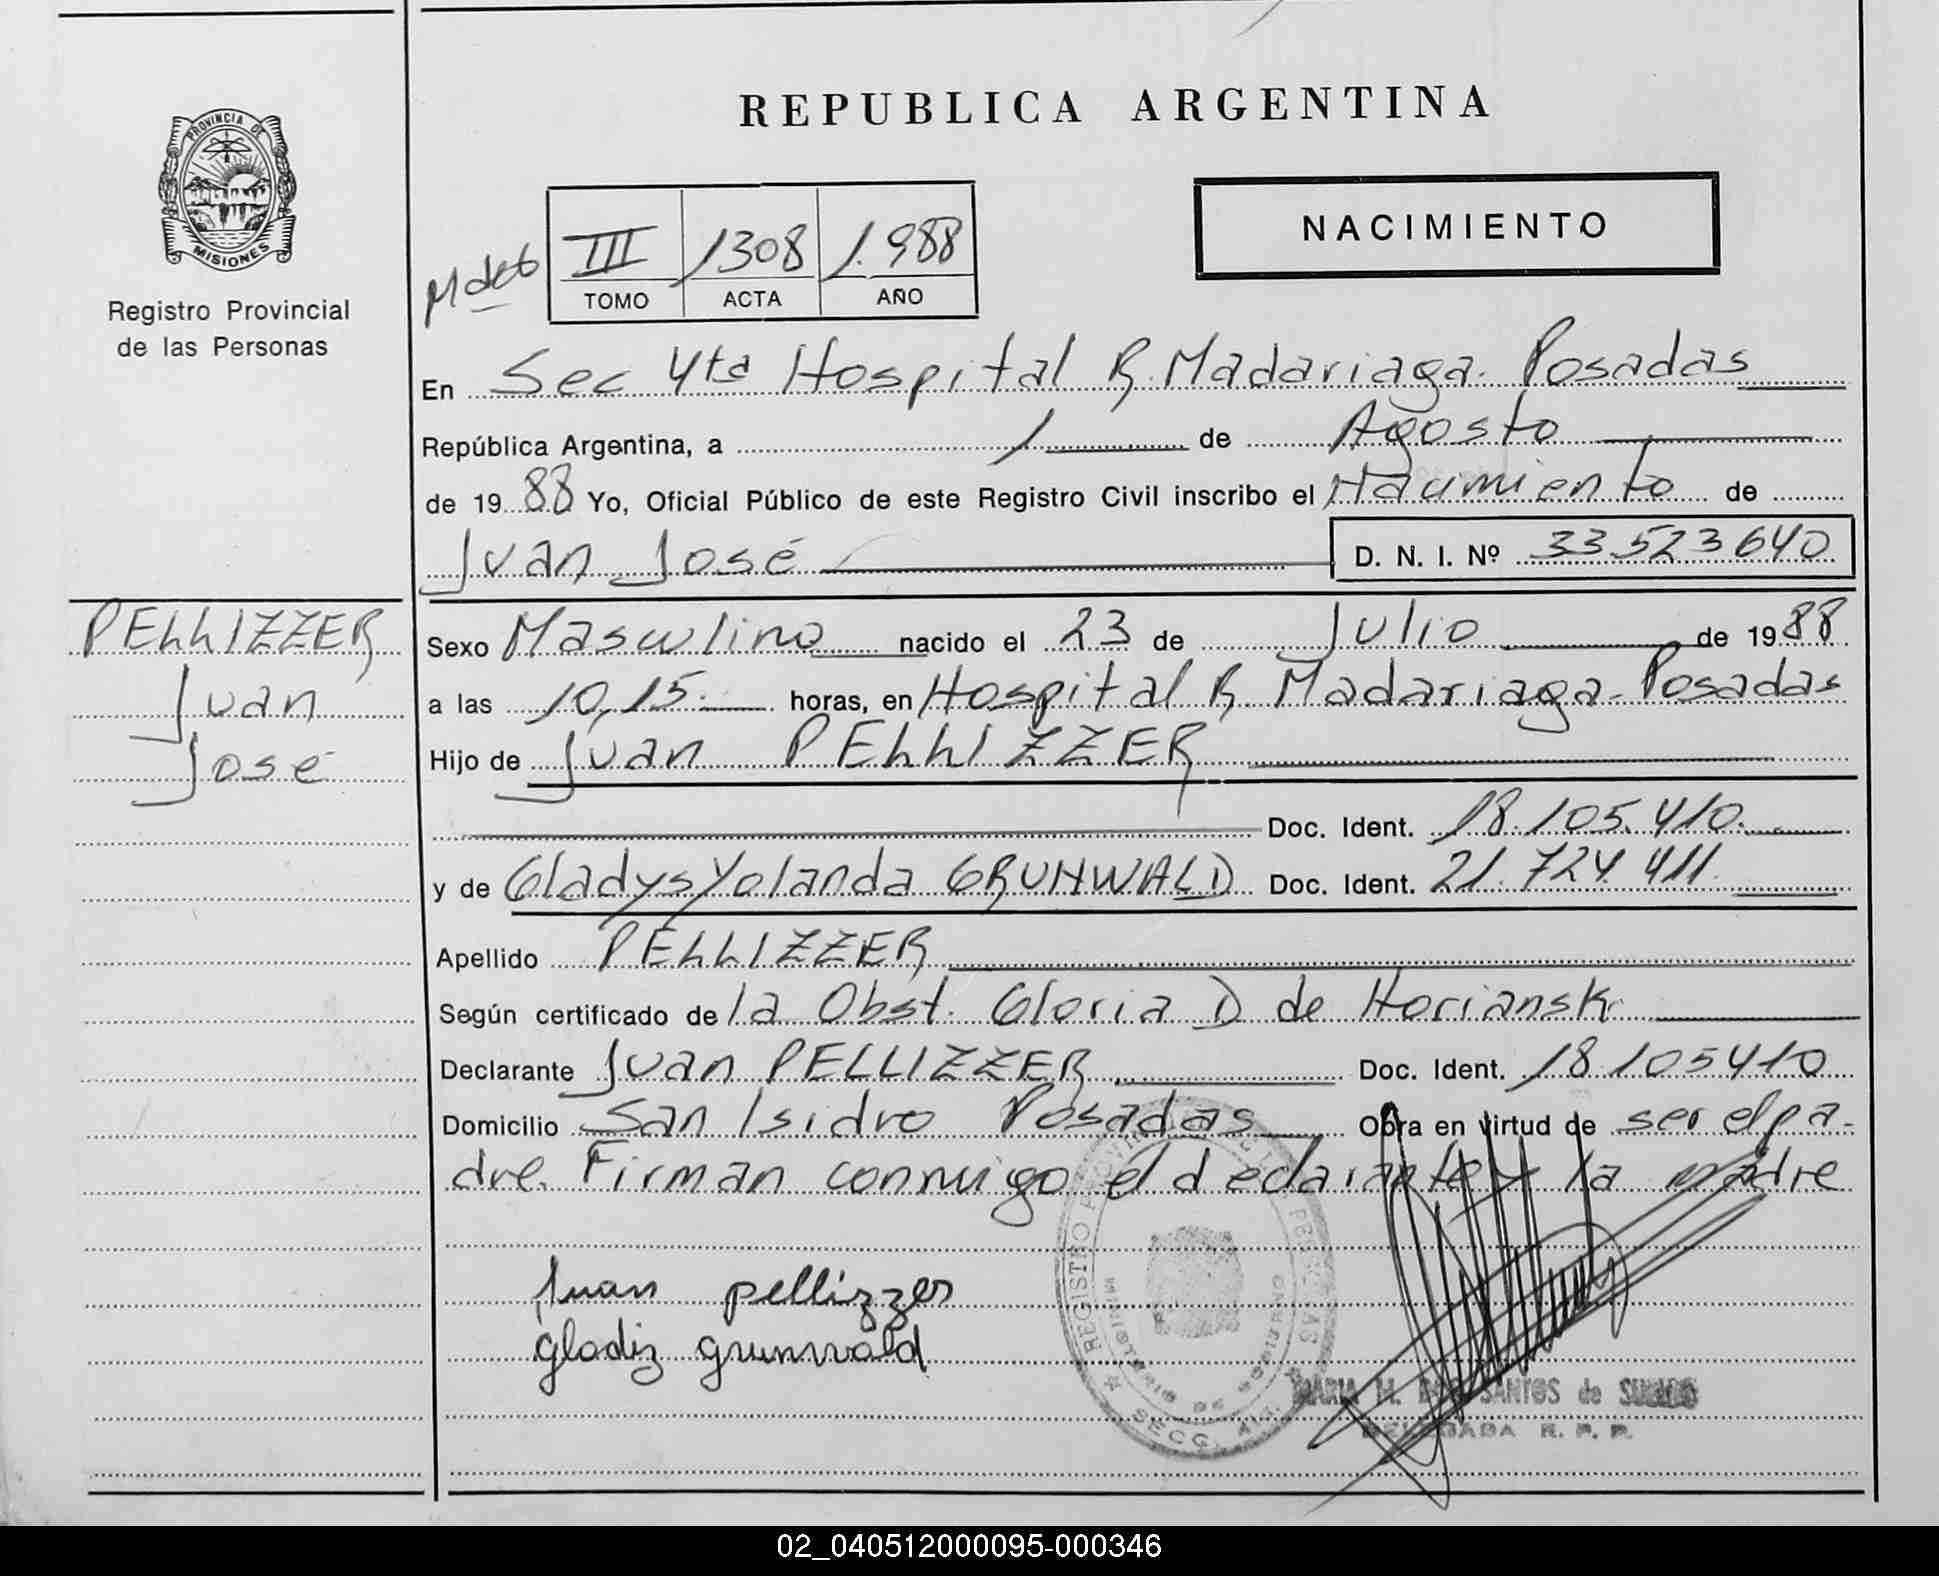 REPUBLICA ARGENTINA
PROVINCIA DE
MISIONES
Registro Provincial
de las Personas
NACIMIENTO
III 1308 1.988
TOMO ACTA AÑO
En Sec 4ta Hospital R. Madariaga. Posadas
República Argentina, a 1 de Agosto
de 1988 Yo, Oficial Público de este Registro Civil inscribo el Nacimiento de
Juan José D. N. I. Nº 33523640
PELLIZZER
Juan
José
Sexo Masculino nacido el 23 de Julio de 1988
a las 10,15. horas, en Hospital R. Madariaga. Posadas
Hijo de Juan PELLIZZER
Doc. Ident. 18.105.410.
y de Gladys Yolanda GRUNWALD Doc. Ident. 21.724.411.
Apellido PELLIZZER
Según certificado de la Obst. Gloria D de Horianski
Declarante Juan PELLIZZER Doc. Ident. 18.105410
Domicilio San Isidro Posadas Obra en virtud de ser el pa-
dre. Firman conmigo el declarante y la madre
Juan pellizzer
gladiz grunwald
REGISTRO PROVINCIAL DE LAS PERSONAS
MINISTERIO DE GOBIERNO
SECC. 4ta.
MARIA M. DOS SANTOS de
DELEGADA R. P. P.
02_040512000095-000346